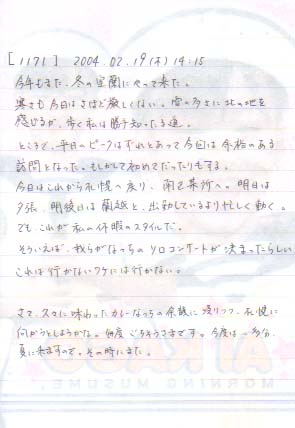 [1171] 2004.02.19(木) 14:15
今年もまた、冬の室蘭にやって来た。
寒さも今日はさほど厳しくない。雪の多さに北の地を
感じるが、歩く私は勝手知ったる道。
ところで、平日のピークはずれとあって今回は余裕のある
訪問となった。もしかして初めてだったりもする。
今日はこれから札幌へ戻り、南区某所へ。明日は
夕張、明後日は蘭越と、出勤しているより忙しく動く。
でも、これが私の休暇のスタイルだ。
そういえば、我らがなっちのソロコンサートが決まったらしい
これは行かないワケには行かない。
さて、久々に味わったカレーなっちの余韻に浸りつつ、札幌に
向かうとしようかな。毎度ごちそうさまです。今度は多分、
夏に来ますので。その時にまた。
MORNING MUSUME。